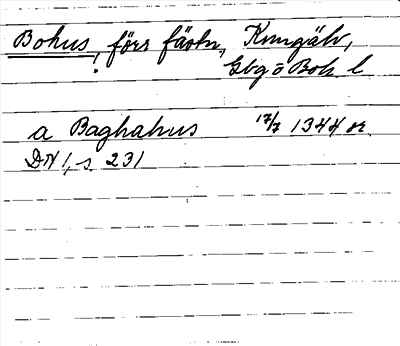 Bohus, förr fästn., Kungälv,
Gbg o Boh l
a Baghahus 17/7 1344 or.
DN 1, s. 231